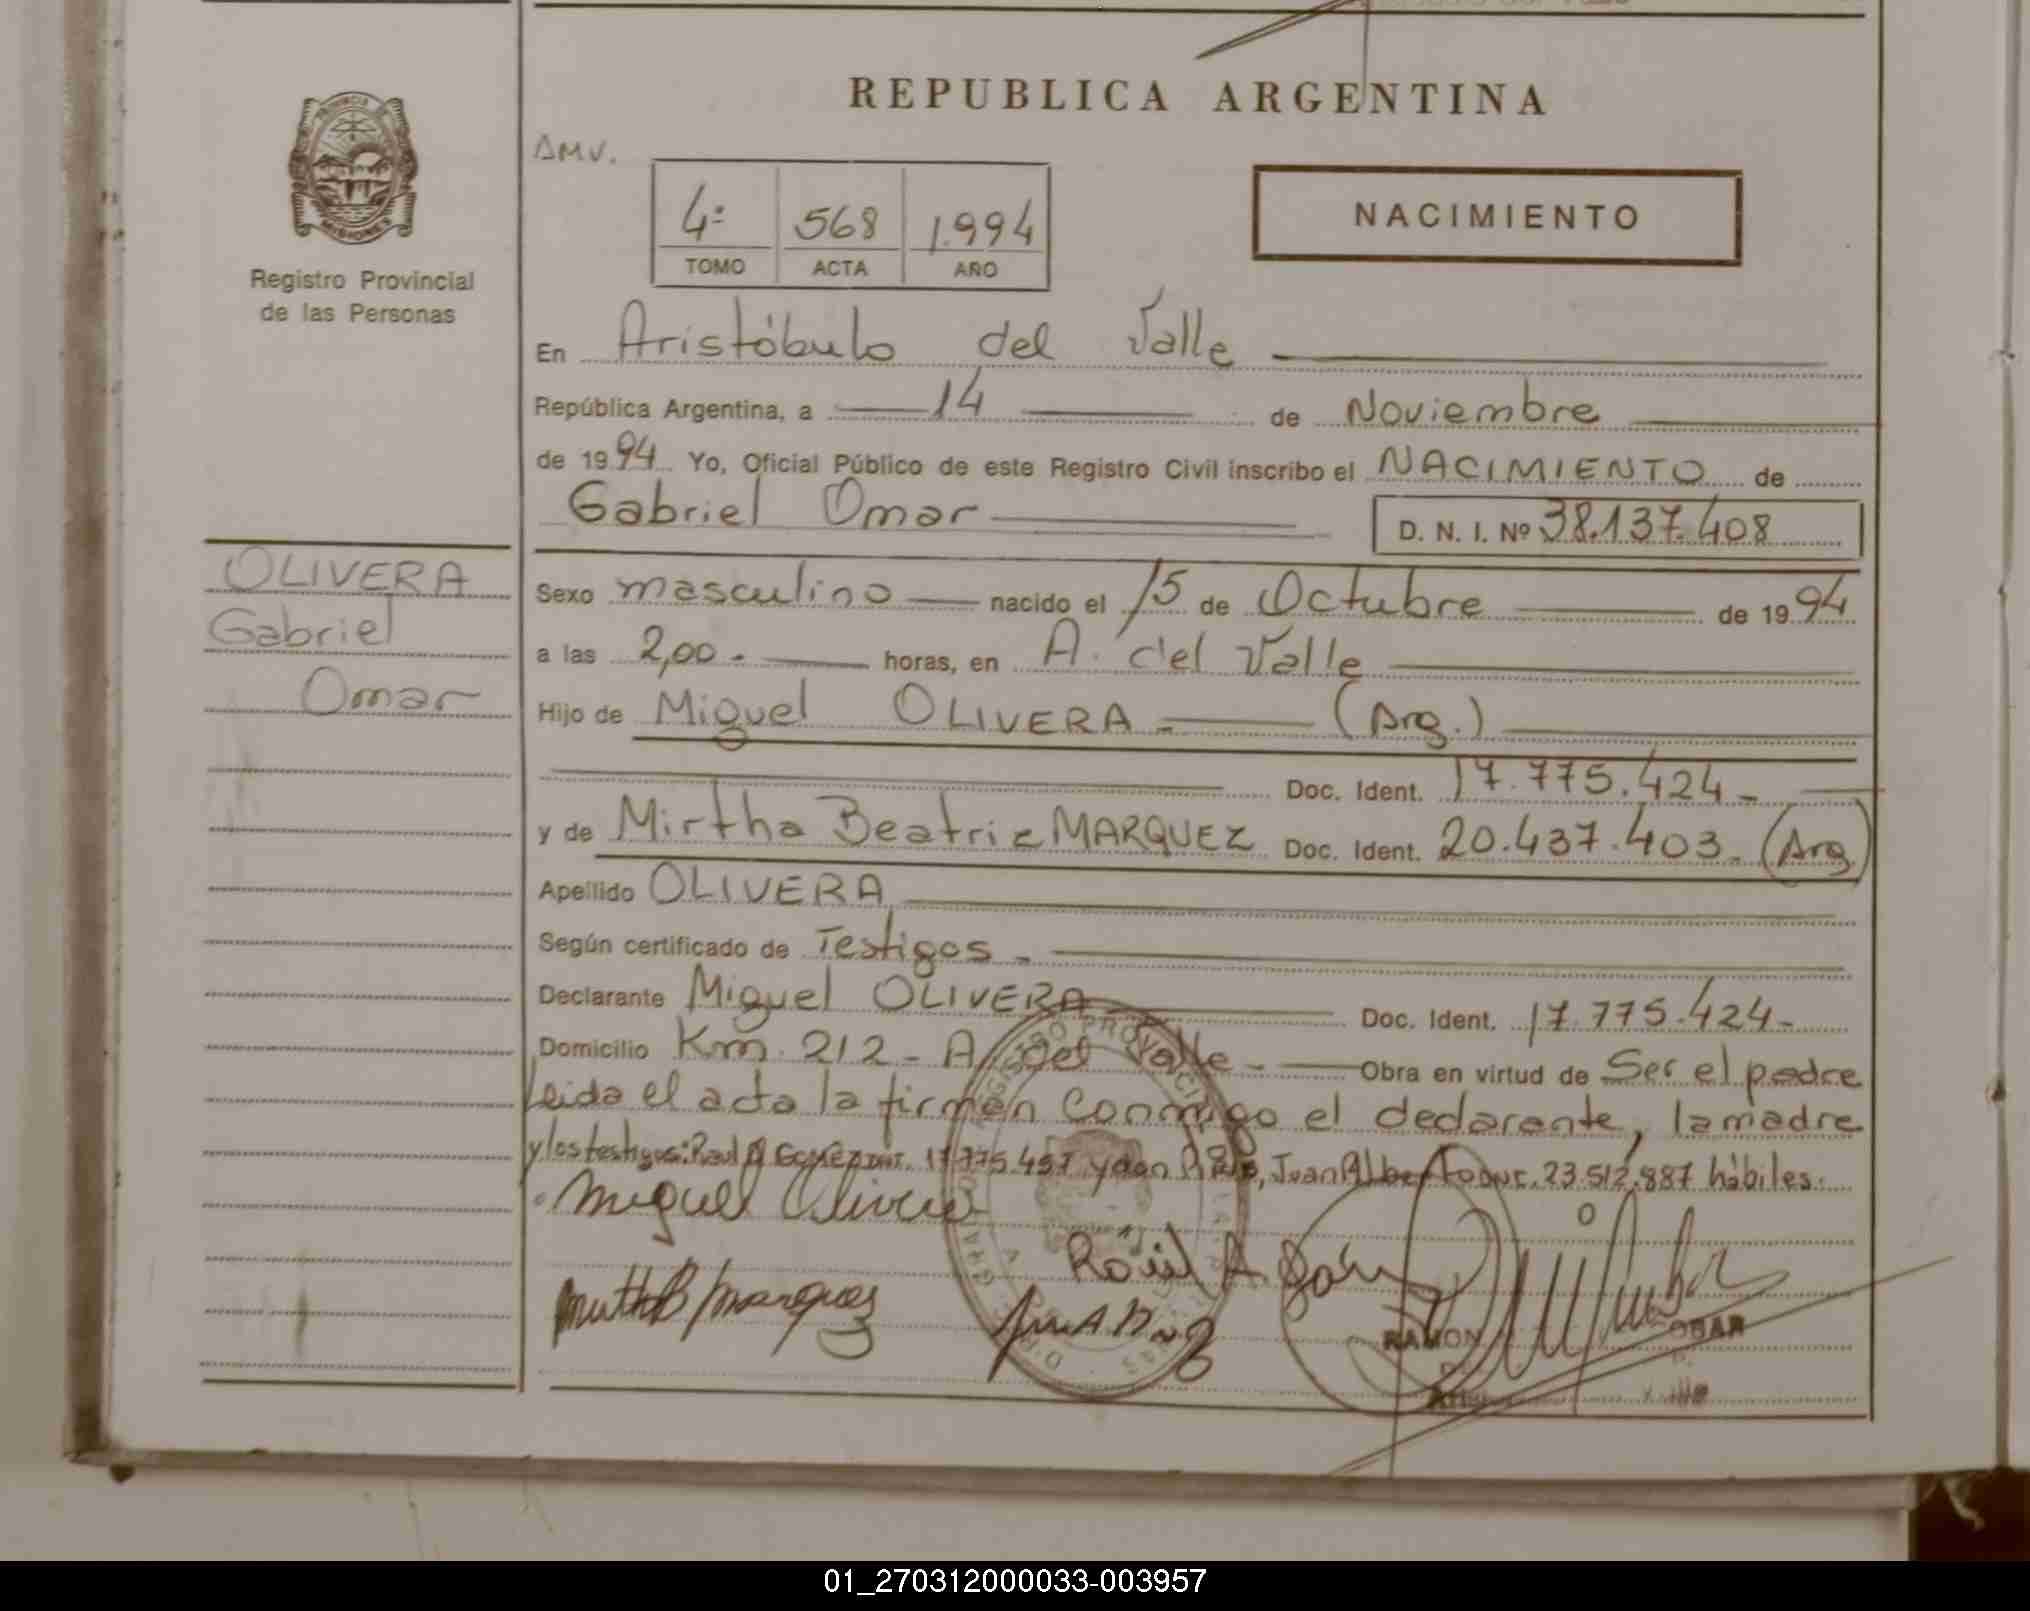 REPUBLICA ARGENTINA
AMV.
PROVINCIA DE MISIONES
Registro Provincial
de las Personas
4º 568 1.994
TOMO ACTA AÑO
NACIMIENTO
En Aristóbulo del Valle
República Argentina, a 14 de Noviembre
de 1994 Yo, Oficial Público de este Registro Civil inscribo el NACIMIENTO de
Gabriel Omar D. N. I. Nº 38.137.408
OLIVERA
Gabriel
Omar
Sexo masculino nacido el 15 de Octubre de 1994
a las 2,00.- horas, en A. del Valle
Hijo de Miguel OLIVERA - (Arg.)
Doc. Ident. 17.775.424-
y de Mirtha Beatriz MARQUEZ Doc. Ident. 20.437.403- (Arg)
Apellido OLIVERA
Según certificado de Testigos -
Declarante Miguel OLIVERA Doc. Ident. 17.775.424-
Domicilio Km. 212 - A. del Valle - Obra en virtud de Ser el padre
Leida el acta la firman conmigo el declarante, la madre
y los testigos: Raul A GOMEZ 17.775.457 y Juan Alberto 23.512.887 hábiles.
Miguel Olivera
Raúl A.
Mirtha B Marquez
Juan A.
RAMON
01_270312000033-003957